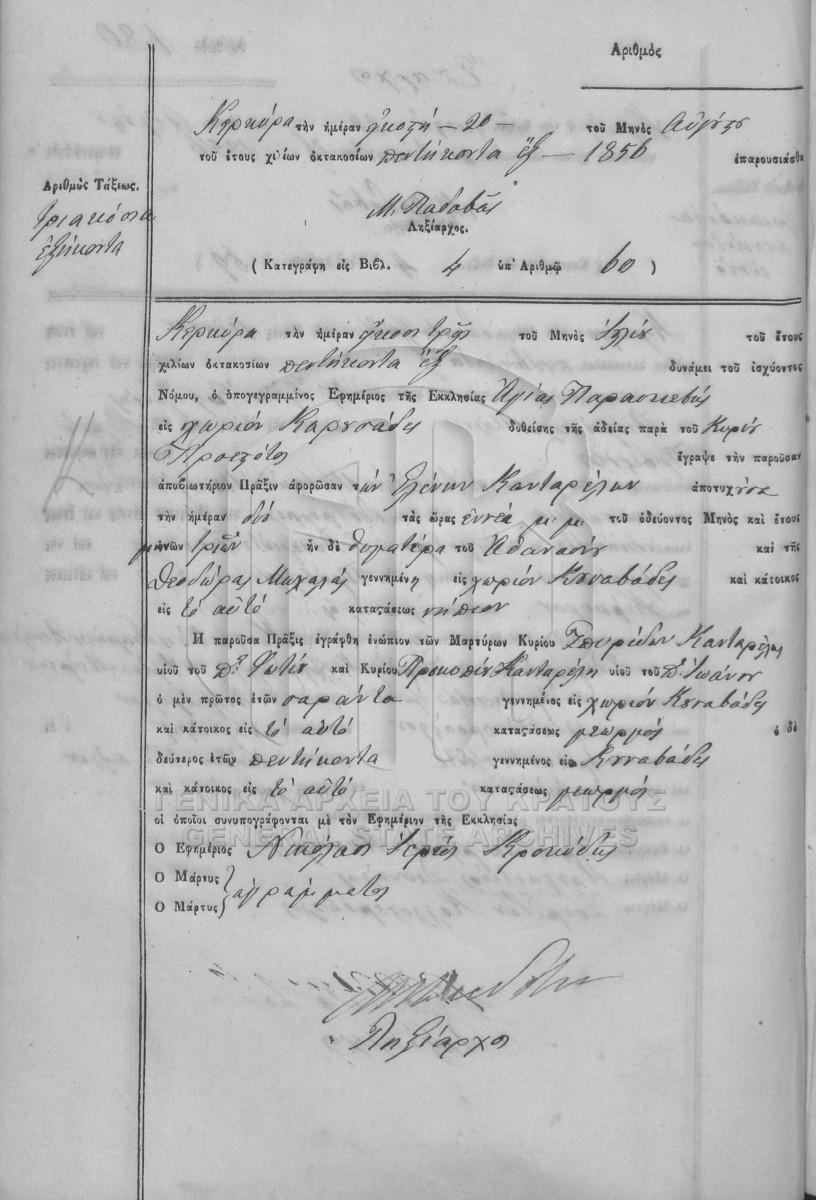 Ἀριθμὸς
Κερκύρα τὴν ἡμέραν εἰκοστὴ — 20 — τοῦ Μηνὸς Αὐγύστυ
τοῦ ἔτους χιλίων ὀκτακοσίων πεντήκοντα ἕξ — 1856 ἐπαρουσιάσθη
Ἀριθμὸς Τάξεως.
τριακόσια
ἑξήκοντα
Μ. Παδοβᾶς
Ληξίαρχος.
( Κατεγράφη εἰς Βιβλ. 4 ὑπ' Ἀριθμῷ 60 )
Κερκύρα τὴν ἡμέραν εἴκοσι τρεῖς τοῦ Μηνὸς Ἰυλίυ τοῦ ἔτους
χιλίων ὀκτακοσίων πεντήκοντα ἕξ δυνάμει τοῦ ἰσχύοντος
Νόμου, ὁ ὑπογεγραμμένος Ἐφημέριος τῆς Ἐκκλησίας Ἁγίας Παρασκευῆς
εἰς χωρίον Καρυσάδες δοθείσης τῆς ἀδείας παρὰ τοῦ Κυρίυ
Προεστότος ἔγραψε τὴν παροῦσαν
ἀποβιωτήριον Πρᾶξιν ἀφορῶσαν τὴν Ἑλένην Κανταρέλην ἀποτυχῦσα
τὴν ἡμέραν δύο τὰς ὥρας ἐννέα μ. μ. τοῦ ὁδεύοντος Μηνὸς καὶ ἔτους
μηνῶν τριῶν ἦν δὲ θυγατέρα τοῦ Ἀθανασίυ καὶ τῆς
Θεοδώρας Μιχαλᾶς γεννημένη εἰς χωρίον Κυναβάδες καὶ κάτοικος
εἰς τὸ αὐτό καταστάσεως νήπιον
Ἡ παροῦσα Πρᾶξις ἐγράφθη ἐνώπιον τῶν Μαρτύρων Κυρίου Σπυρίδων Κανταρέλης
υἱοῦ τοῦ πο Φωτίυ καὶ Κυρίου Προκοπίυ Κανταρέλη υἱοῦ τοῦ πο Ἰωάνου
ὁ μὲν πρῶτος ἐτῶν σαράντα γεννημένος εἰς χωρίον Κυναβάδες
καὶ κάτοικος εἰς τὸ αὐτό καταστάσεως γεωργός ὁ δὲ
δεύτερος ἐτῶν πεντήκοντα γεννημένος εἰς Κυναβάδες
καὶ κάτοικος εἰς τὸ αὐτό καταστάσεως γεωργός
οἱ ὁποῖοι συνυπογράφονται μὲ τὸν Ἐφημέριον τῆς Ἐκκλησίας
Ὁ Ἐφημέριος Νικόλαος Ἱερεύς
Ὁ Μάρτυς
Ὁ Μάρτυς ἀγράμματοι
Ληξίαρχος
ΓΕΝΙΚΑ ΑΡΧΕΙΑ ΤΟΥ ΚΡΑΤΟΥΣ
GENERAL STATE ARCHIVES